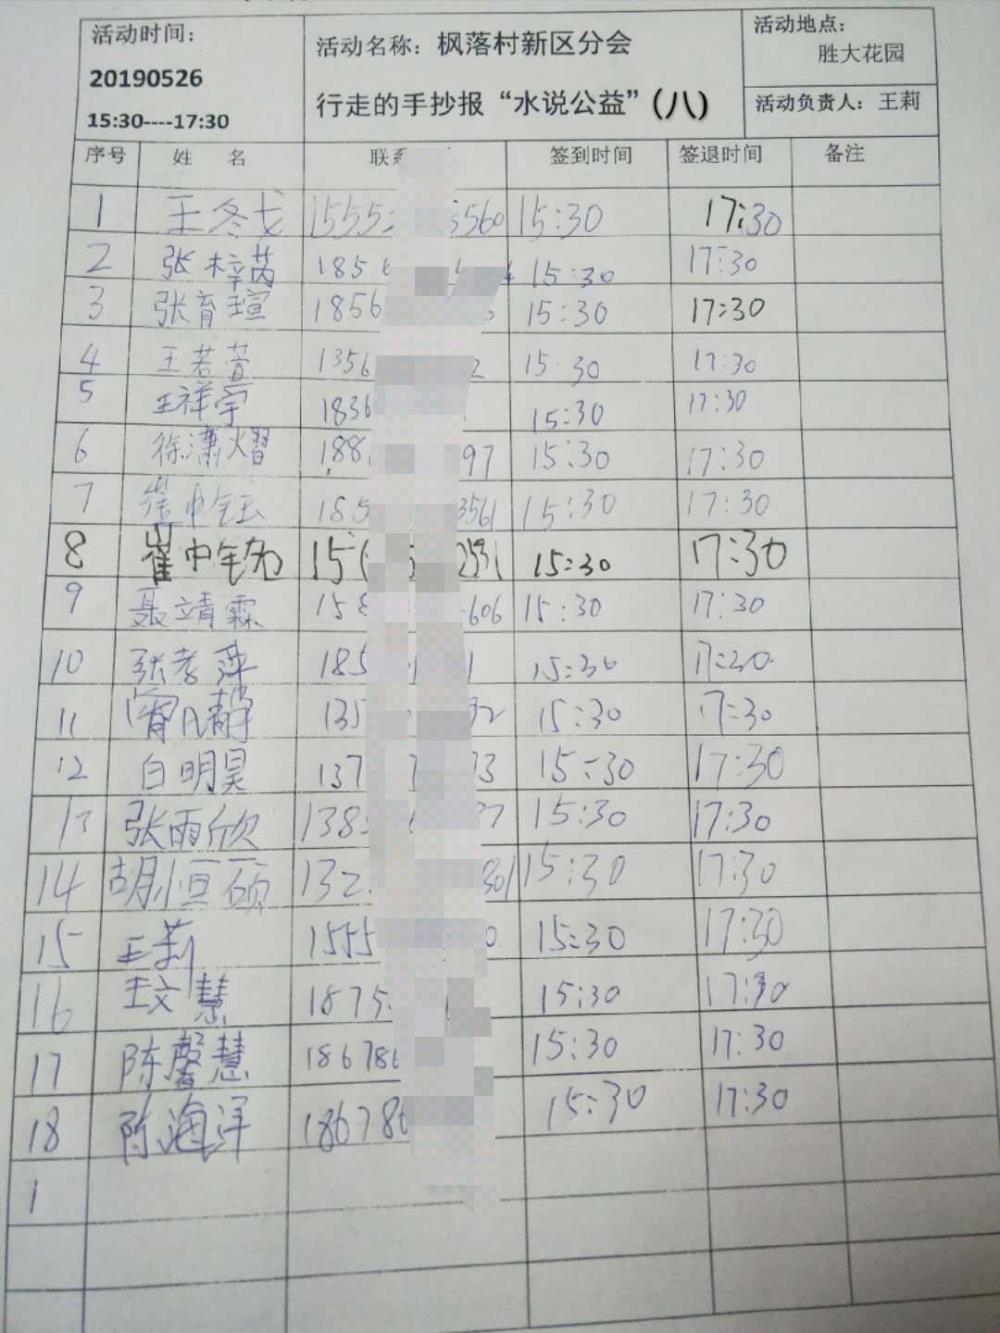 活动时间：
20190526
15:30----17:30
活动名称：枫落村新区分会
行走的手抄报“水说公益”（八）
活动地点：
胜大花园
活动负责人：王莉
序号 姓 名 联系 签到时间 签退时间 备注
1 王冬戈 1555 560 15:30 17:30
2 张梓芮 185 15:30 17:30
3 张育瑄 1856 15:30 17:30
4 王若萱 1356 2 15:30 17:30
5 王祥宇 1836 15:30 17:30
6 徐潇熠 188 97 15:30 17:30
7 崔中钰 185 3561 15:30 17:30
8 崔中铭 15 15:30 17:30
9 聂靖霖 158 606 15:30 17:30
10 张孝萍 185 1 15:30 17:30
11 甯凡静 135 92 15:30 17:30
12 白明昊 137 73 15:30 17:30
13 张雨欣 1385 37 15:30 17:30
14 胡恒硕 132 301 15:30 17:30
15 王莉 1555 0 15:30 17:30
16 王文慧 1875 15:30 17:30
17 陈馨慧 186786 15:30 17:30
18 陈海洋 186786 15:30 17:30
1